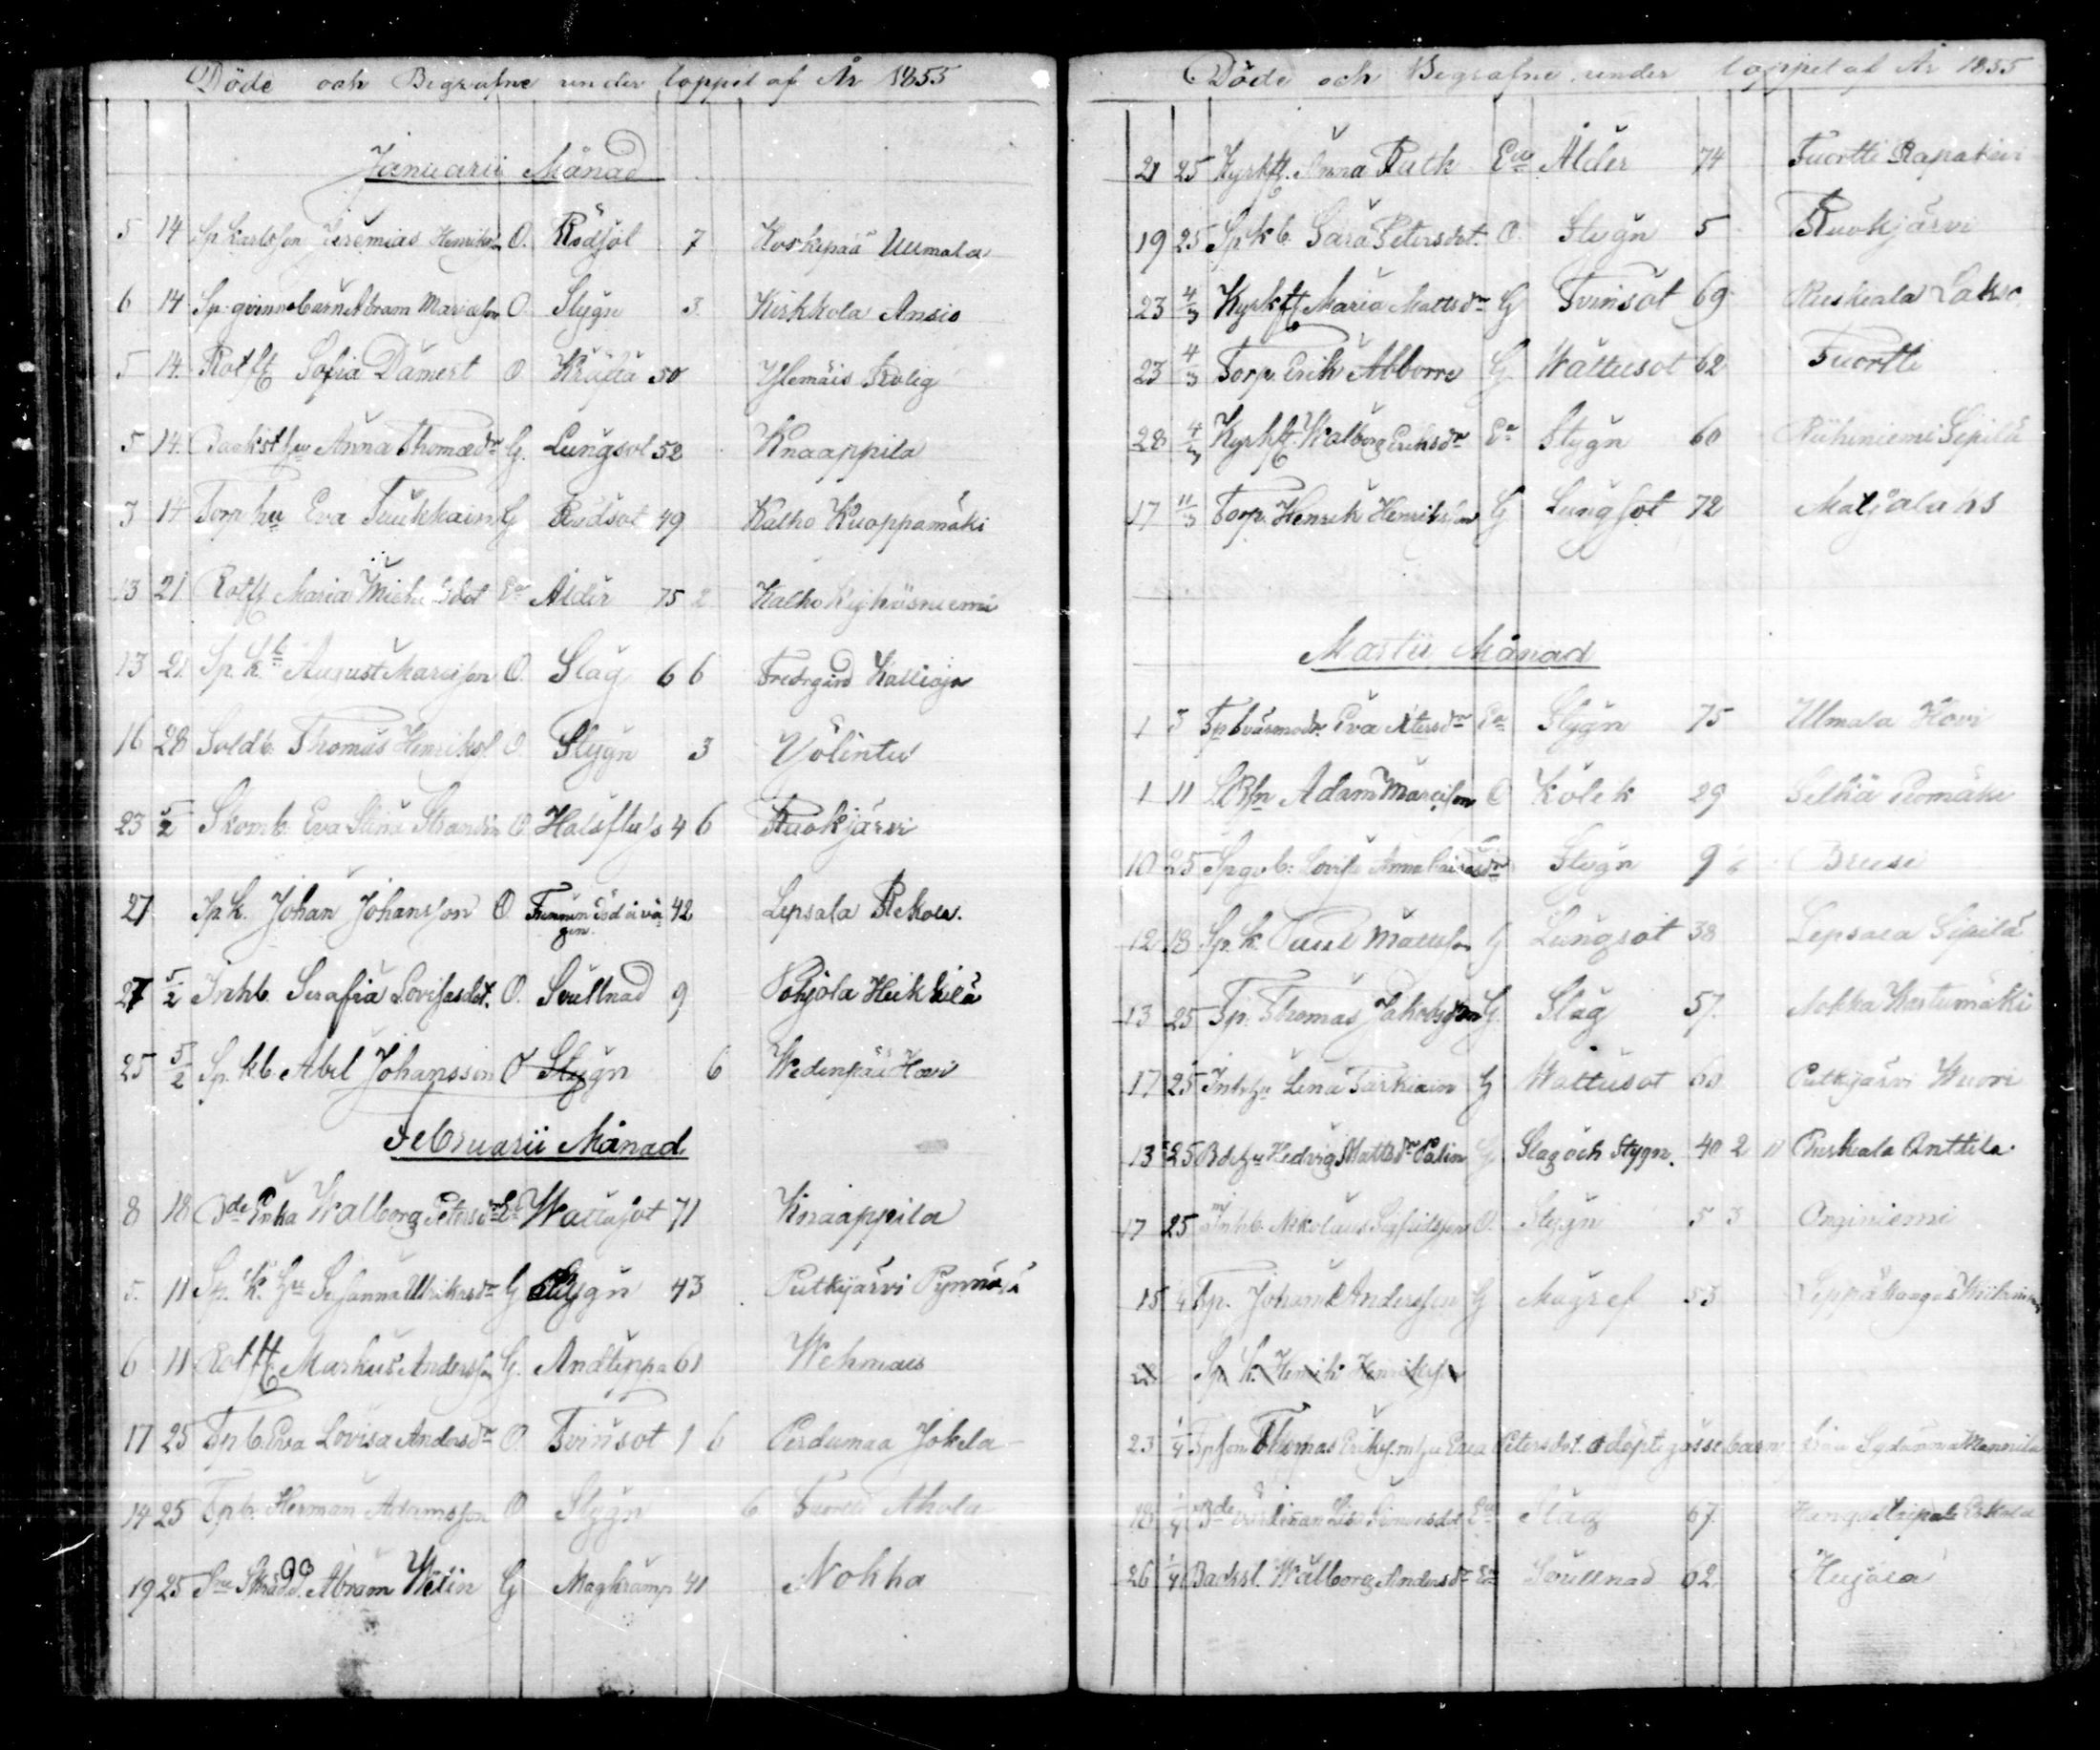 Döde och Begrafne under loppet af År 1855
Januarii Månad
5 14 Sp Karlsson Jeremias Henriks O. Rödsot 7 Koskipää Uumala
6 14 Sp. qvinnobarn Abram Mariæson O Stygn 3 Kirkkola Ansio
5 14. Rotft Sofia Damert O Kräfta 50 Ylemäis Rolig
5 14. Backst hu Anna Thomædr G. Lungsot 52 Knaappila
3 14 Torp hu Eva Tuukkain G Rödsot 49 Kalho Kuoppamäki
13 21 Rotft Maria Michelsdot Ea Ålder 75 2 Kalho
13 21. Sp. K. August Mariæson O. Slag 6 6 Fredsgård Kallioja
16 28 Sold b. Thomas Henriksf. O Stygn 3 Völintu
23 5/2 Skom b. Eva Stina Strandin O. Halsfluss 4 6 Ruokjärvi
27 Sp k. Johan Johansson O Funnen död å vägen 42 Lepsala Rekola.
27 5/2 Inh b. Serafia Lovisasdot. O. Svullnad 9 Pohjola Heikkilä
25 5/2 Sp. kb. Abel Johansson O Stygn 6 Wedenpää Hovi
Februarii Månad
8 18 Bde Enka Walborg Petersdr Ea Wattusot 71 Knaappila
5. 11 Sp. K. hu Susanna Ulriksdr G Stygn 43 Putkijärvi
6 11 Rotft Markus Andersson G. Andtäppa 61 Wehmais
17 25 Tp b. Eva Lovisa Andersdr O. Tvinsot 1 6 Perdumaa Jokela
14 25 Tp b. Herman Adamsson O Stygn 6 Tuortti Ahola
19 25 Skrädd. Abram Welin G Magkramp 41 Nokka
Döde och Begrafne under loppet af År 1855
21 25 Kyrkft. Anna Ruth Ea Ålder 74 Tuortti Rapakivi
19 25 Sp k b. Sara Petersdot. O. Stygn 5 Ruokjärvi
23 4/3 Kyrkft Maria Mattsdr G Tvinsot 69 Ruskiala Lakso
23 4/3 Torp. Erik Abborre G Wattusot 62 Tuortti
28 4/3 Kyrkft. Walborg Eriksdr Ea Stygn 60 Riihiniemi Sipilä
17 11/3 Torp. Henrik Henriksson G Lungsot 72 Maljalaks
Martii Månad
1 5 Tp svärmodr. Eva Petersdr Ea Stygn 75 Ulmala Hovi
1 11 Adam Mariæson O Kolik 29 Selkä
10 25 Sp gv b: Lovisa Anna Stygn 9 6 Brusi
12 18 Sp. k. Paul Mattsson G Lungsot 38 Lepsala Sipilä
13 25 Tp. Thomas Jakobsson G. Slag 57. Nokka Kartumäki
17 25 Inh hu Lena Tarkiain G Wattusot 60 Putkijärvi Wuori
13 25 Bde hu Hedvig Mattsdr Palin G Slag och Stygn. 40 2 11 Ruskiala Anttila.
17 25 Inh b. Nikolaus Sigfridsson O. Stygn 5 3 Onginiemi
15 1/4 Tp. Johan Andersson G Magref 53
28 Sp k. Henrik Henriksson
23 1/4 Tp son Thomas Eriksf. m hu Eva Petersdot. odöpt gossebarn Mannila
18 1/4 Bde Lisa Simonsdot Ea Slag 67. Kangas Eskola
26 1/4 Backst. Walborg Andersdr Ea Svullnad 62 Hujala